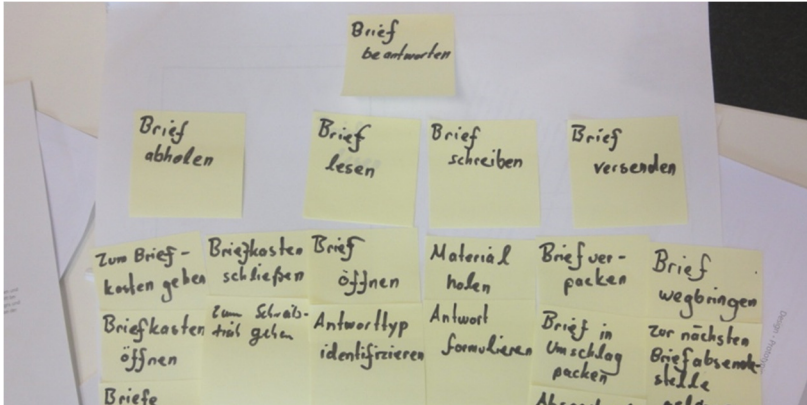 Brief
beantworten
Brief
abholen
Brief
lesen
Brief
schreiben
Brief
versenden
Zum Brief-
kasten gehen
Briefkasten
schließen
Brief
öffnen
Material
holen
Brief ver-
packen
Brief
wegbringen
Briefkasten
öffnen
Zum Schreib-
tisch gehen
Antworttyp
identifizieren
Antwort
formulieren
Brief in
Umschlag
packen
Zur nächsten
Briefabsende-
stelle
Briefe